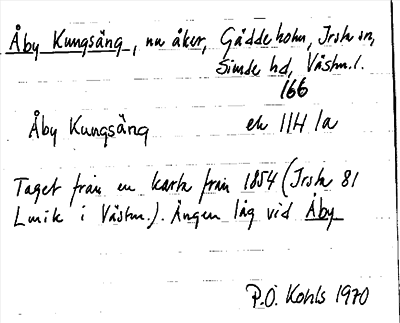 Åby Kungsäng, nu åker, Gäddeholm, Irsta sn,
Simde hd, Västm. l.
166
Åby Kungsäng ek 114 1a
Taget från en karta från 1854 (Irsta 81
Lmík i Västm.). Ängen låg vid Åby
P.O. Kohls 1970